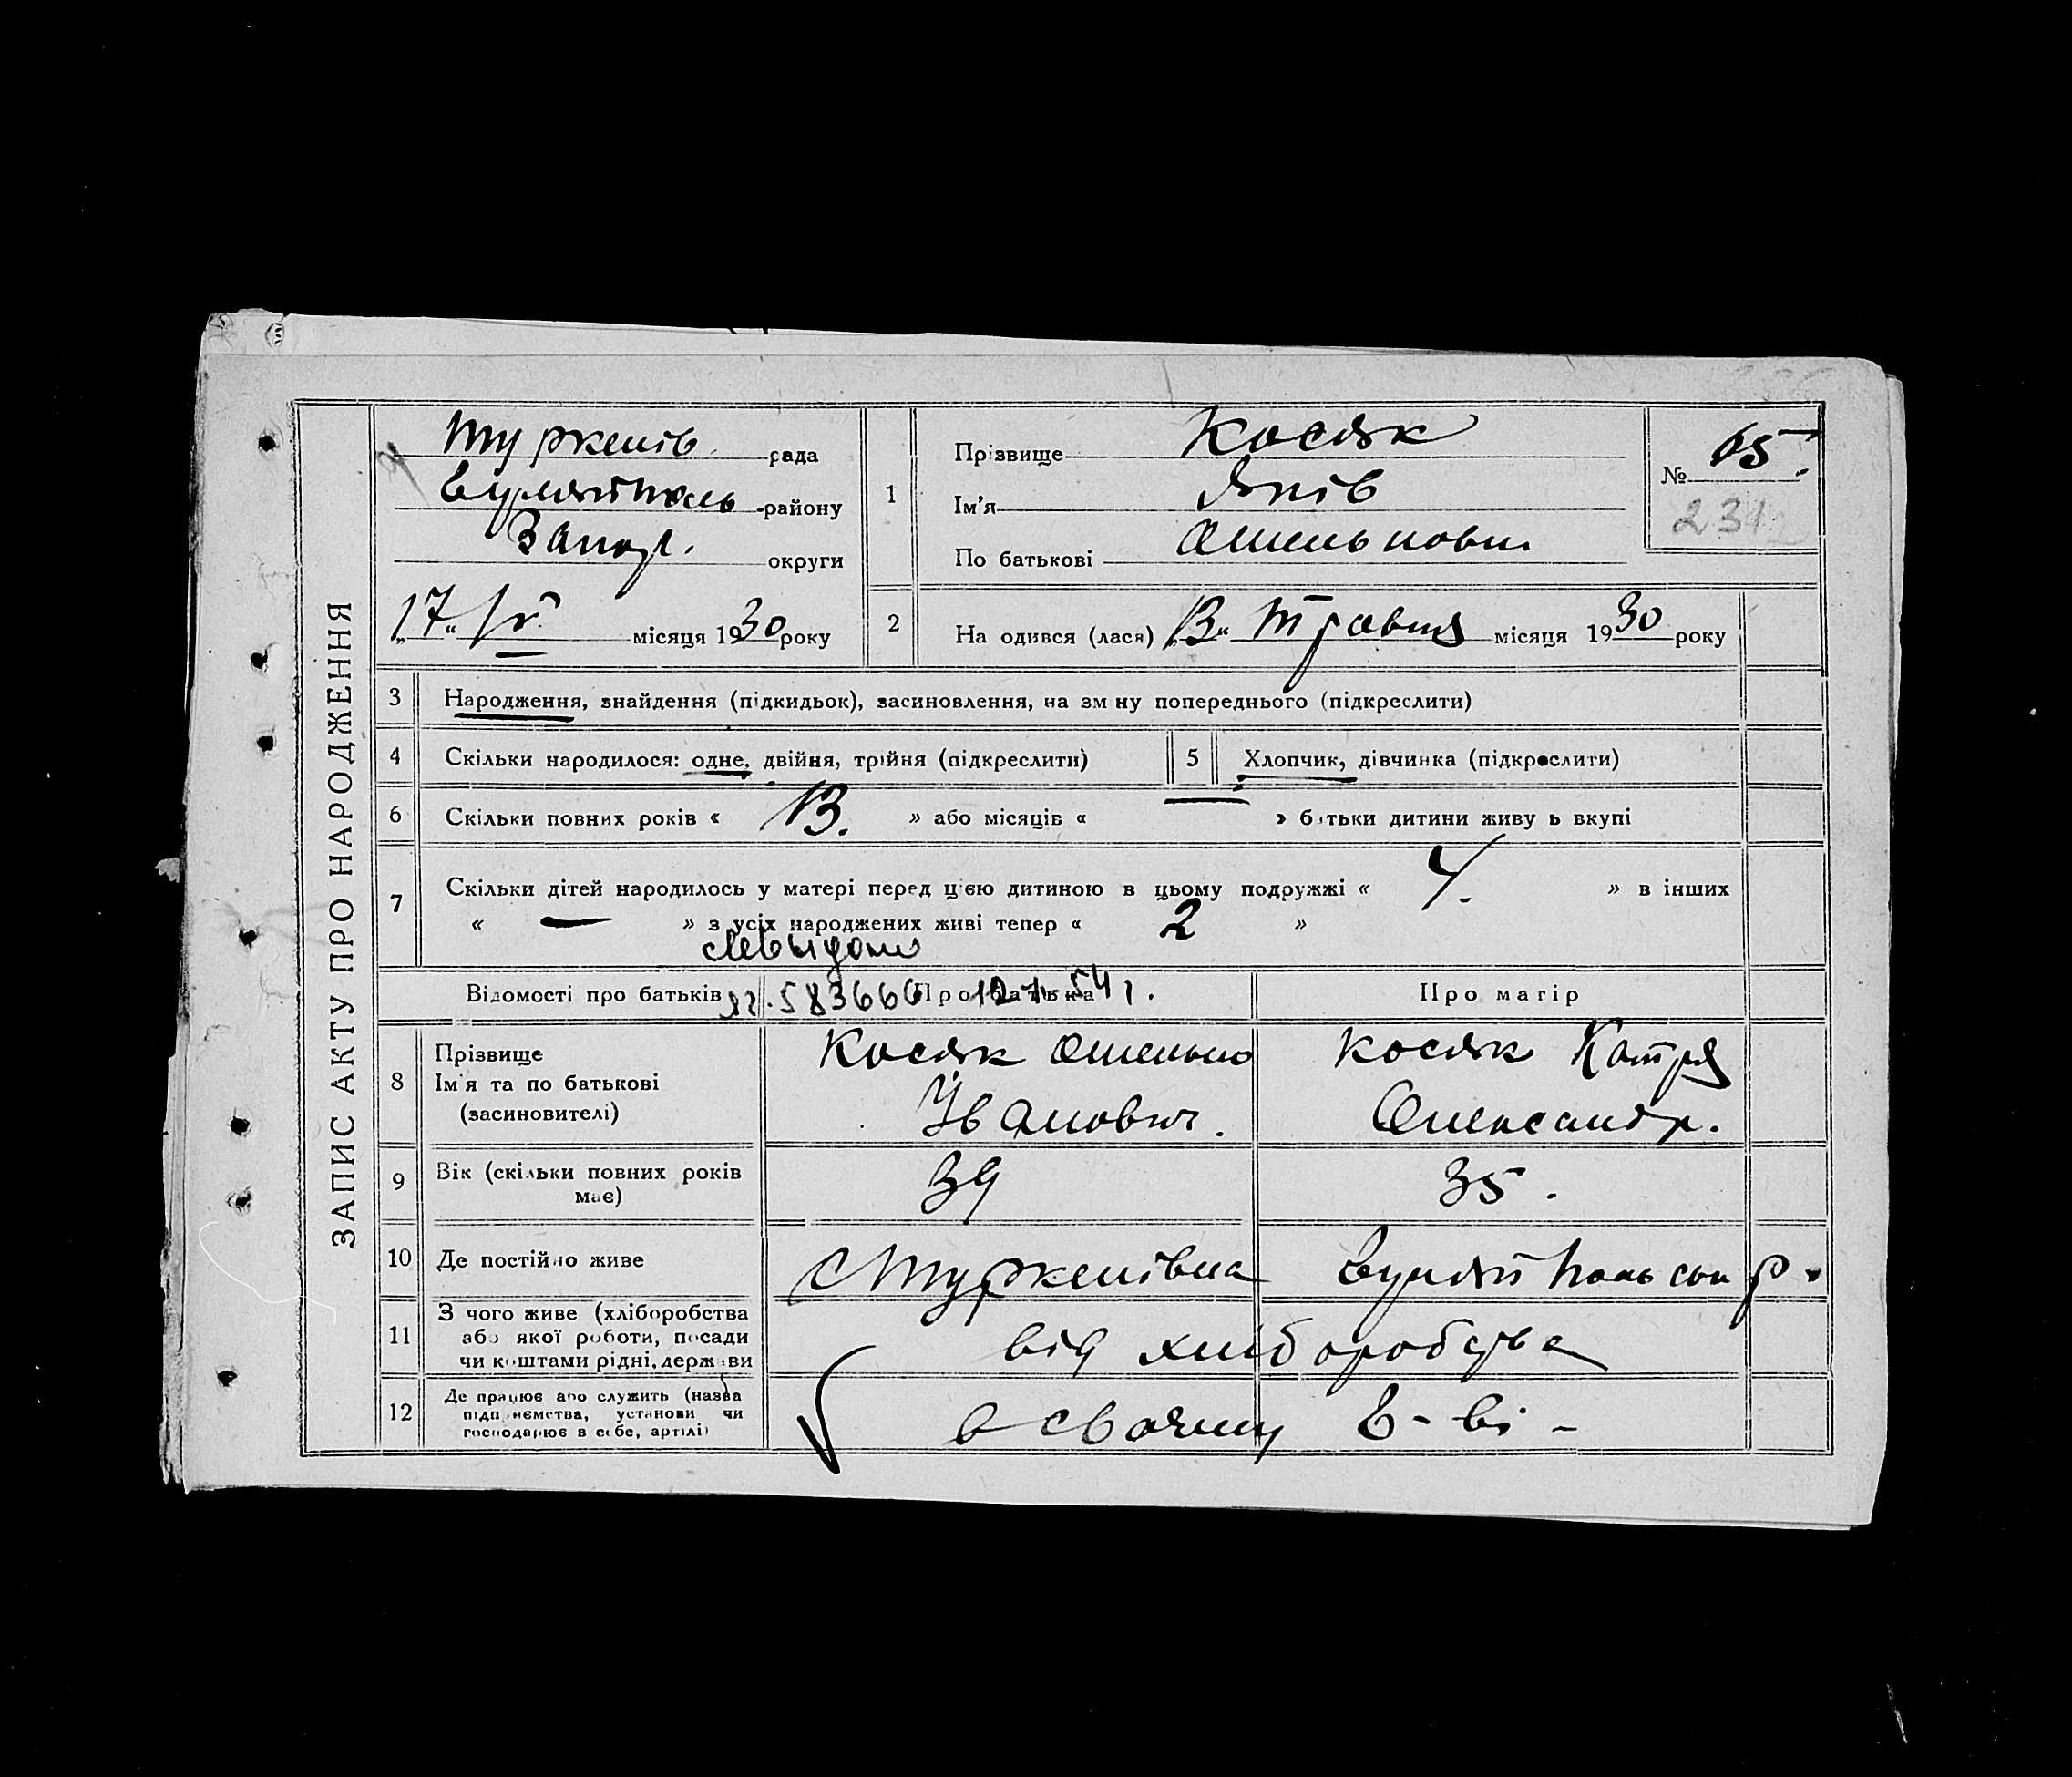 ЗАПИС АКТУ ПРО НАРОДЖЕННЯ
Туркенів. рада
Гуляйполь району
Запор. округи
„17“ V місяця 1930 року
1
Прізвище Косяк
Ім'я Яків
По батькові Омелькович
№ 65.
231
2
На одився (лася) „13“ Травня місяця 1930 року
3 Народження, знайдення (підкидьок), засиновлення, на зм ну попереднього (підкреслити)
4 Скільки народилося: одне, двійня, трійня (підкреслити)
5 Хлопчик, дівчинка (підкреслити)
6 Скільки повних років « 13. » або місяців « — » б тьки дитини живу ь вкупі
7 Скільки дітей народилось у матері перед цією дитиною в цьому подружжі « 4. » в інших
« — » з усіх народжених живі тепер « 2 »
Відомості про батьків
583666
Про батька
Про матір
8 Прізвище
Ім'я та по батькові
(засиновителі)
Косяк Омелько
Іванович.
Косяк Катря
Олександр.
9 Вік (скільки повних років
має)
39
35.
10 Де постійно живе
с Туркенівка
Гуляй Польськ р.
11 З чого живе (хліборобства
або якої роботи, посади
чи коштами рідні, держави
від хліборобства
12 Де працює або служить (назва
підп иємства, установи чи
господарює в себе, артілі)
в своєму г-ві -